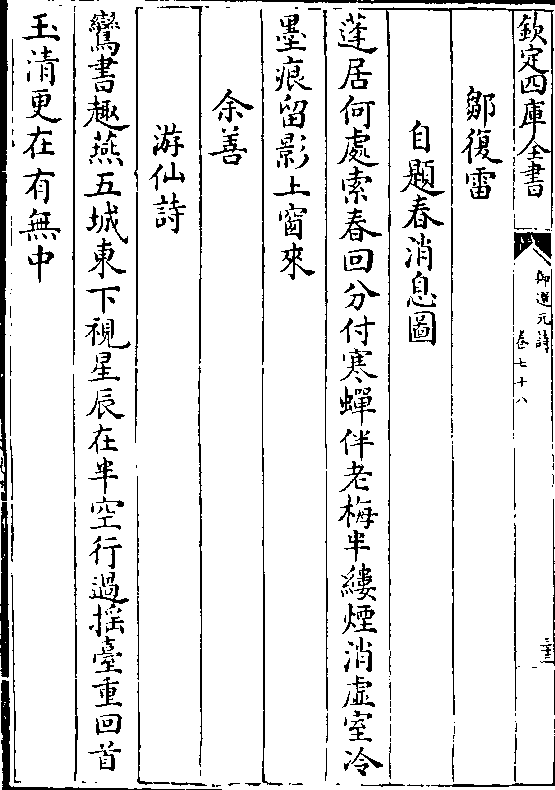 欽定四庫全書
御選元詩
卷七十八
鄒復雷
自題春消息圖
蓬居何處索春回分付寒蟬伴老梅半縷煙消虛室冷
墨痕留影上窗來
余善
游仙詩
鸞書趣燕五城東下視星辰在半空行過揺臺重回首
玉清更在有無中